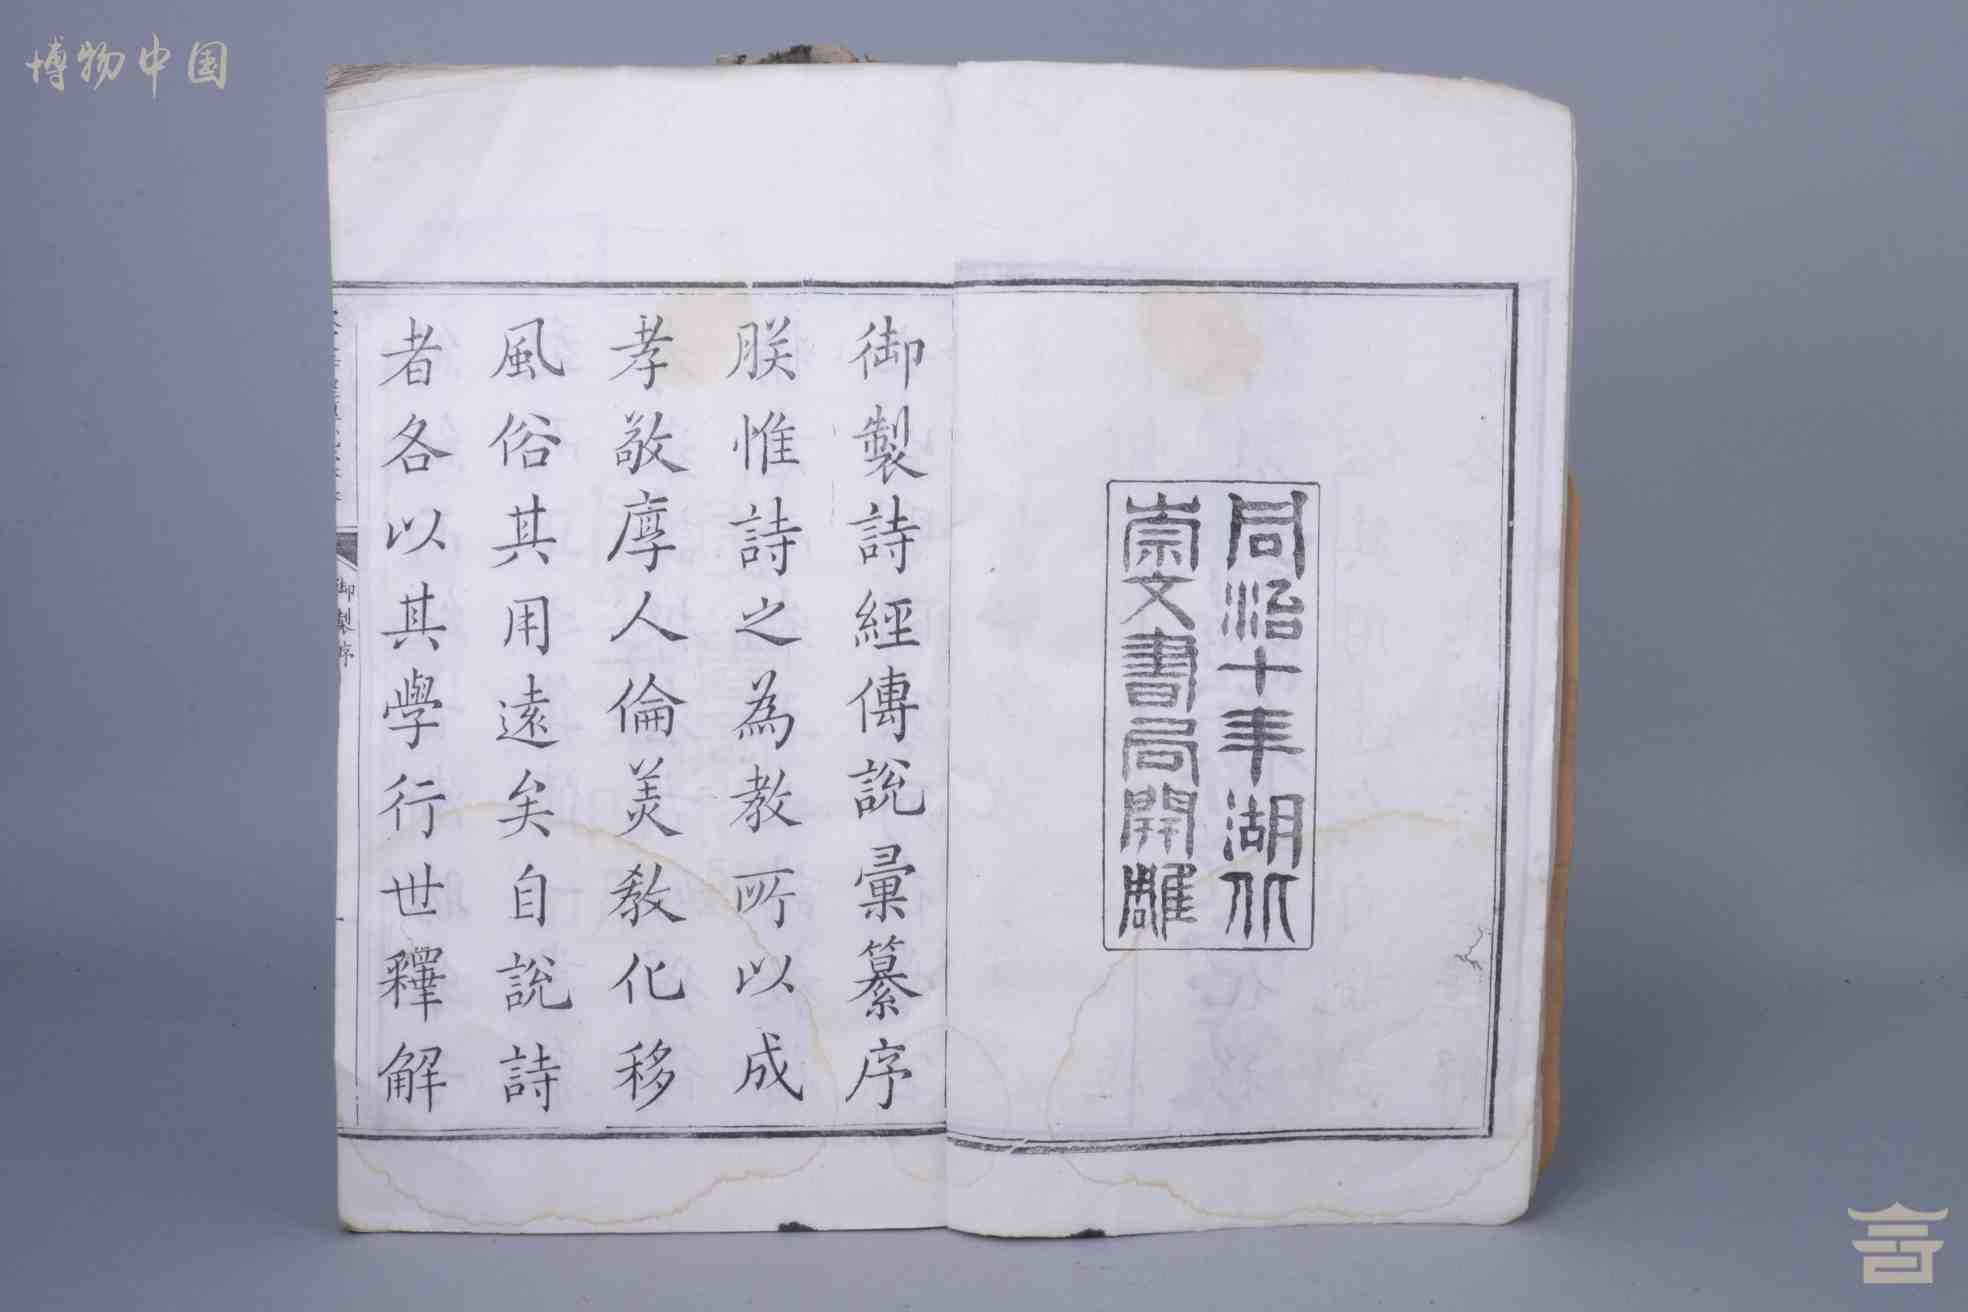 博物中国
同治十年湖北
崇文書局開雕
御製詩經傳說彙纂序
朕惟詩之為教所以成
孝敬厚人倫美教化移
風俗其用遠矣自說詩
者各以其學行世釋解
御製序